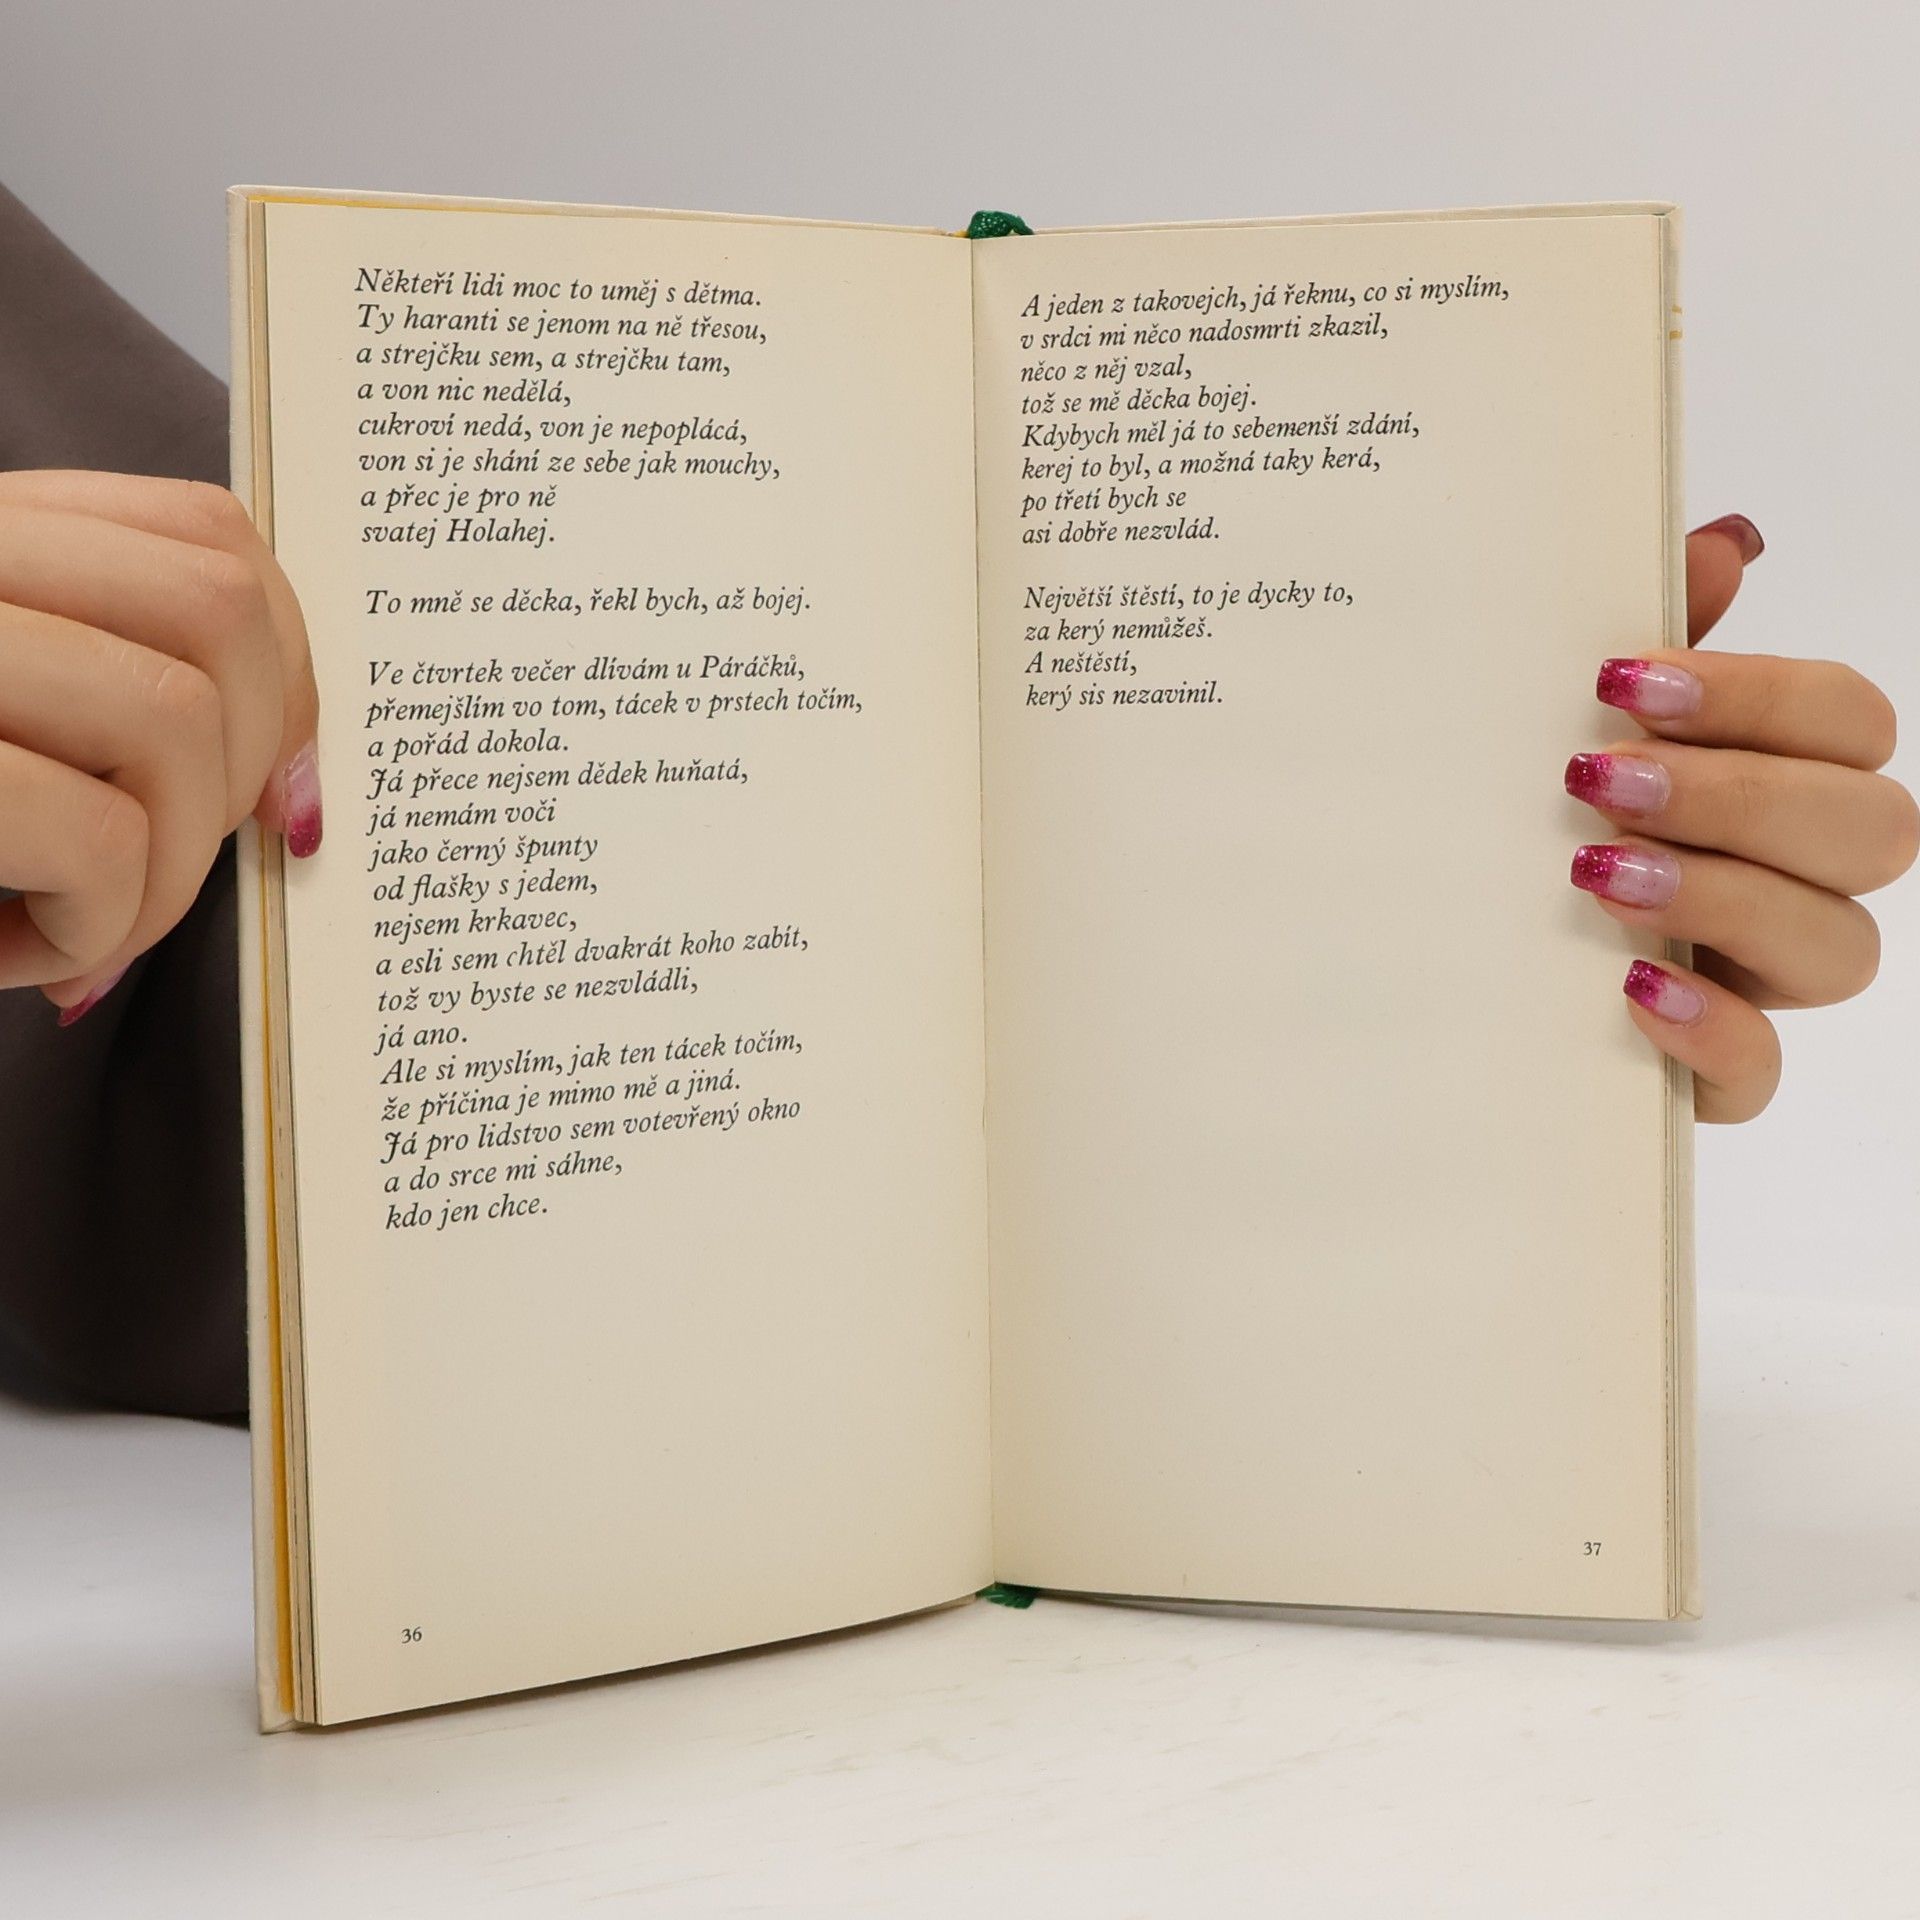 Někteří lidi moc to uměj s dětma.
Ty haranti se jenom na ně třesou,
a strejčku sem, a strejčku tam,
a von nic nedělá,
cukroví nedá, von je nepoplácá,
von si je shání ze sebe jak mouchy,
a přec je pro ně
svatej Holahej.
To mně se děcka, řekl bych, až bojej.
Ve čtvrtek večer dlívám u Páráčků,
přemejšlím vo tom, tácek v prstech točím,
a pořád dokola.
Já přece nejsem dědek huňatá,
já nemám voči
jako černý špunty
od flašky s jedem,
nejsem krkavec,
a esli sem chtěl dvakrát koho zabít,
tož vy byste se nezvládli,
já ano.
Ale si myslím, jak ten tácek točím,
že příčina je mimo mě a jiná.
Já pro lidstvo sem votevřený okno
a do srce mi sáhne,
kdo jen chce.
36
A jeden z takovejch, já řeknu, co si myslím,
v srdci mi něco nadosmrti zkazil,
něco z něj vzal,
tož se mě děcka bojej.
Kdybych měl já to sebemenší zdání,
kerej to byl, a možná taky kerá,
po třetí bych se
asi dobře nezvlád.
Největší štěstí, to je dycky to,
za kerý nemůžeš.
A neštěstí,
kerý sis nezavinil.
37